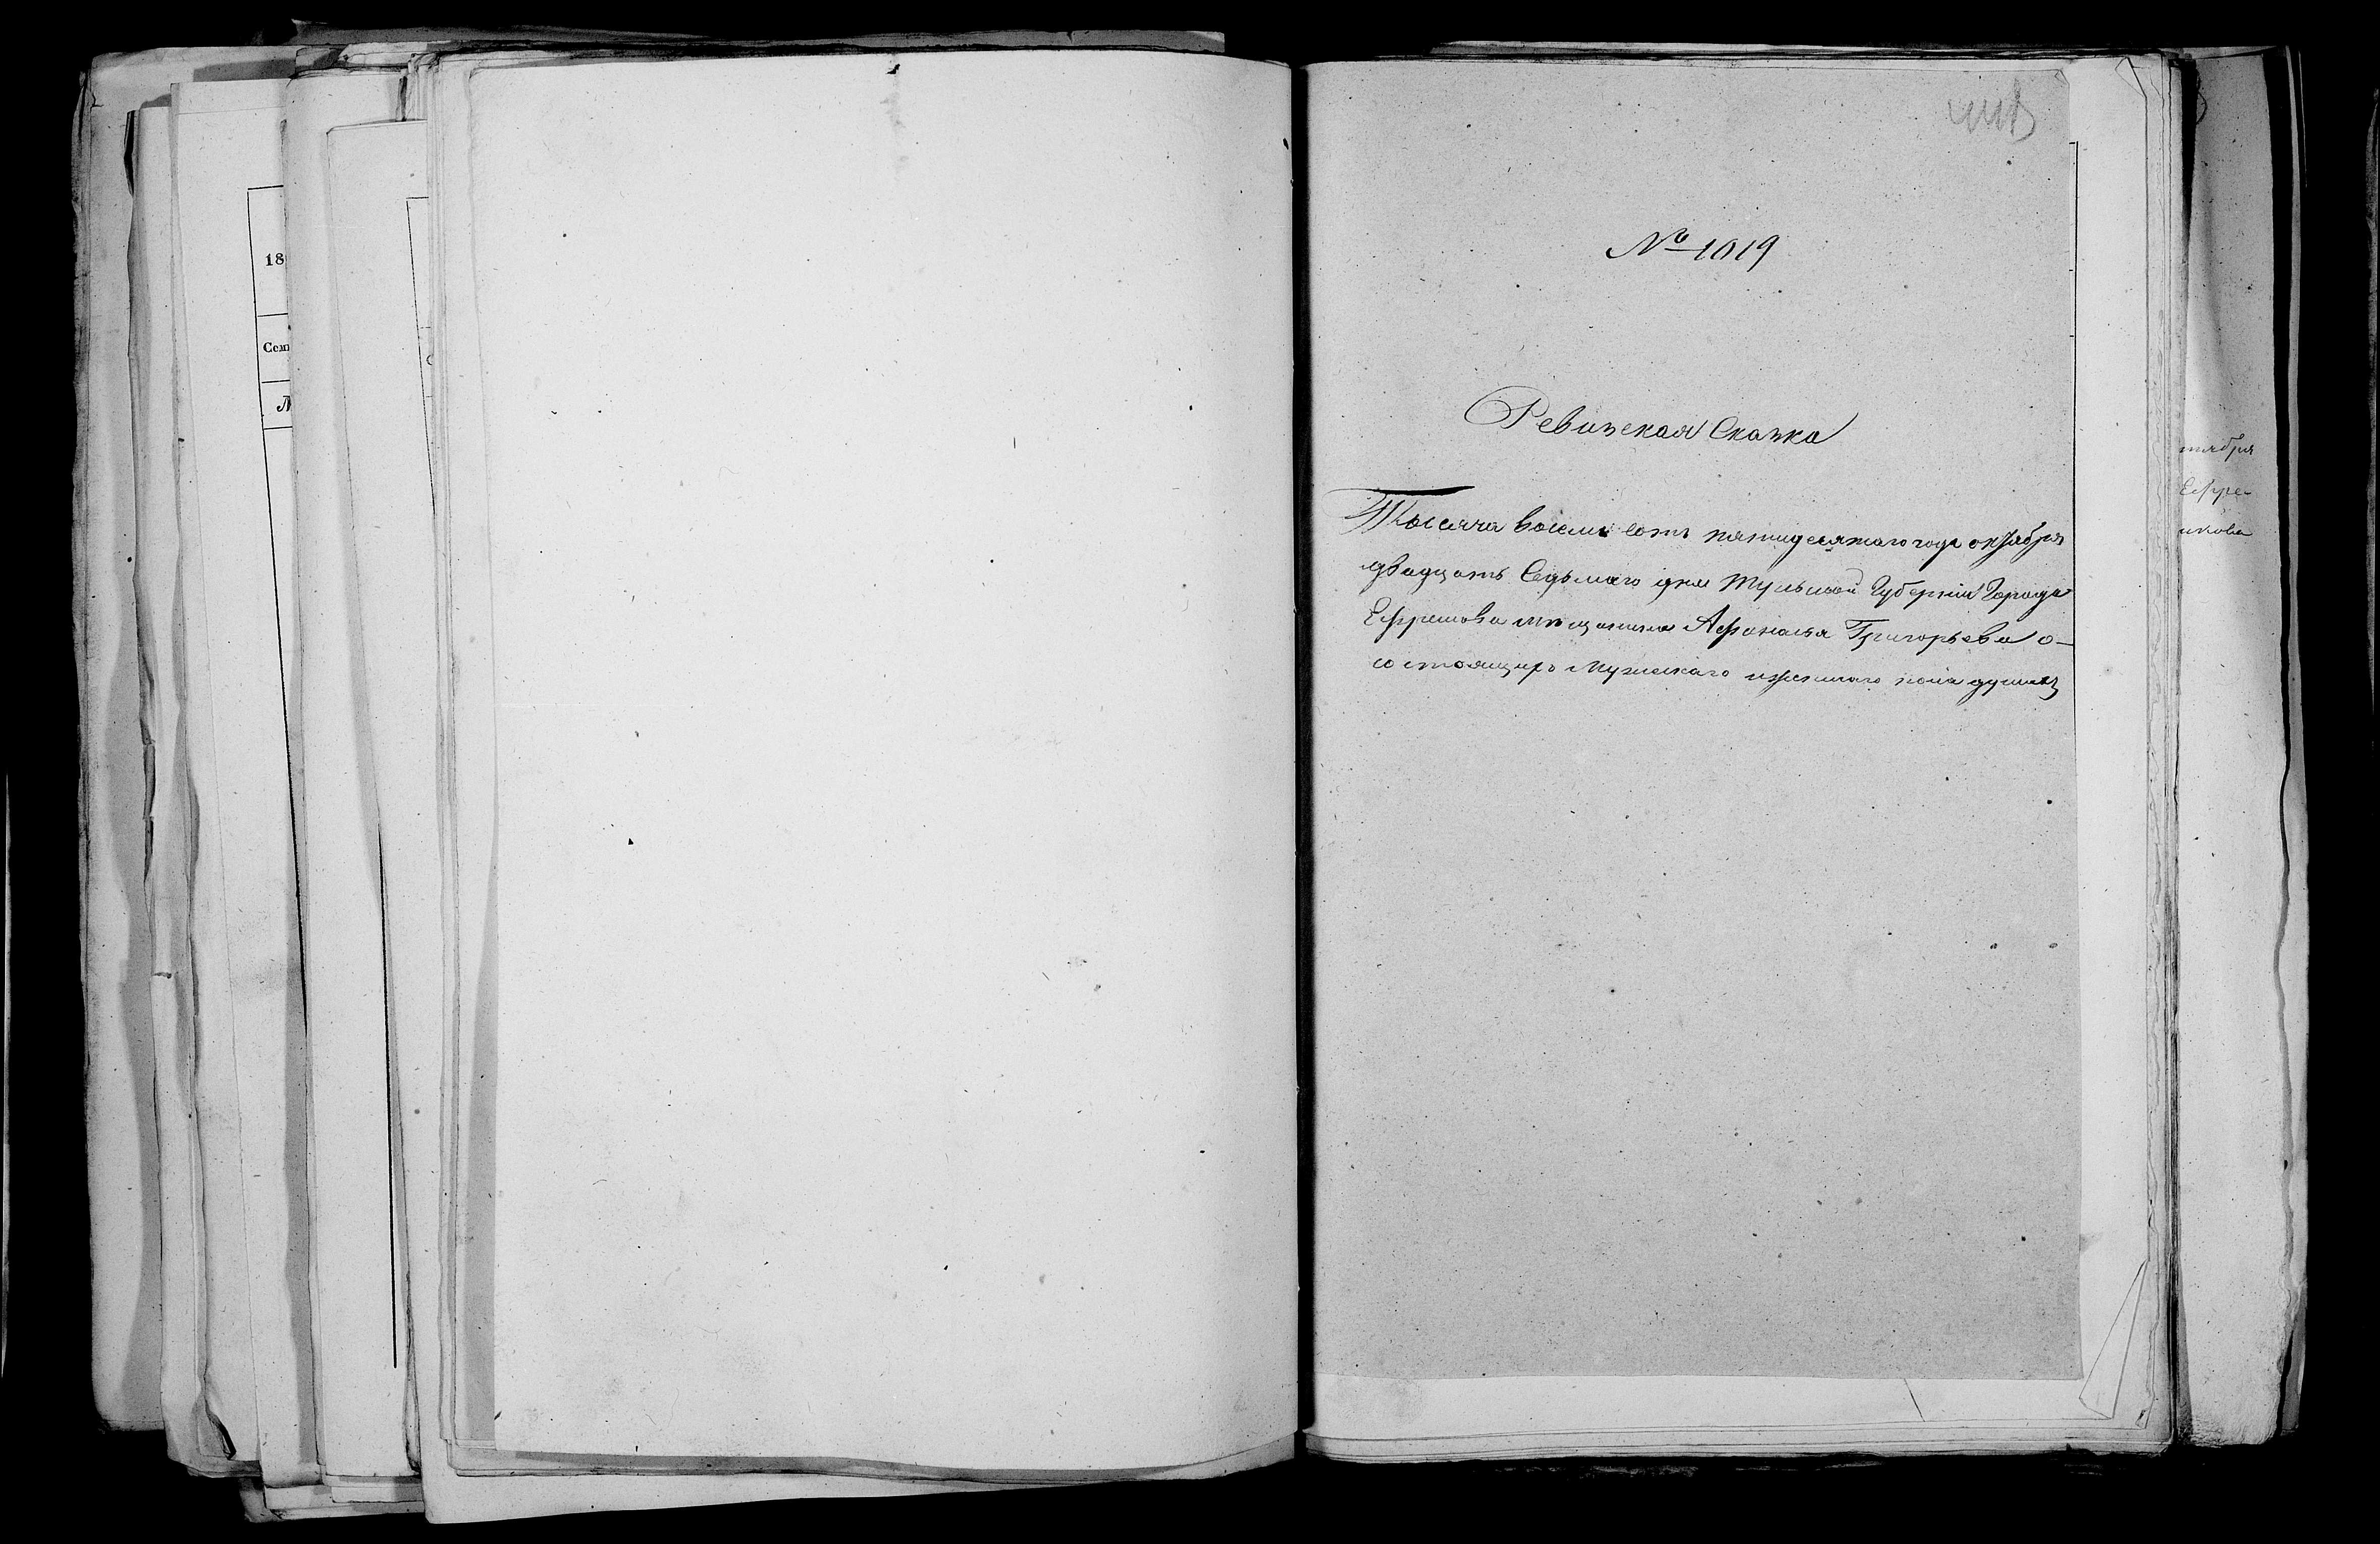 18
Сем
№
№ 1019
Ревизская Сказка
Тысяча восемь сотъ пятидесятаго года октября
двадцать Седьмаго дня Тульской Губерніи Города
Ефремова мѣщанина Афанасья Григорьева о
состоящихъ мужескаго и женскаго пола душахъ
тября
Ефре-
икова